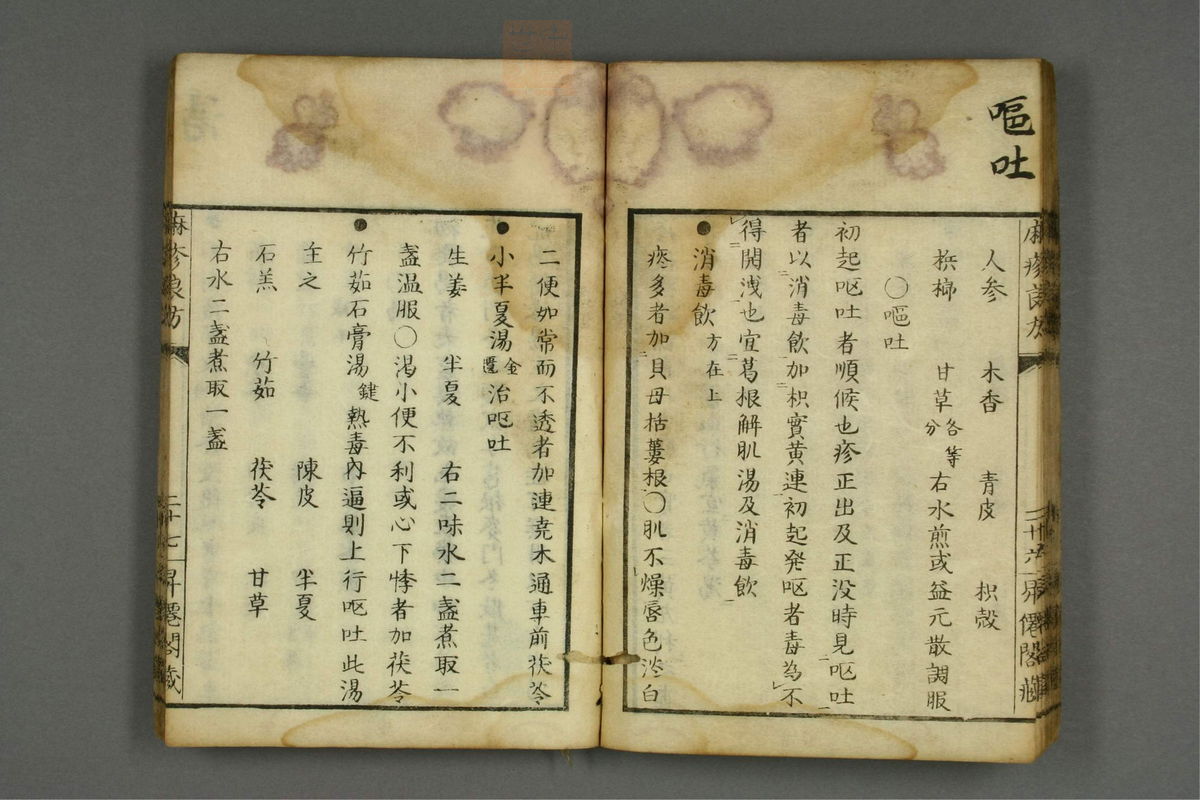 嘔吐
人参 木香 青皮 枳殻
梹榔 甘草各等分 右水煎或益元散調服
〇嘔吐
初起呕吐者順候也疹正出及正没時見呕吐
者以消毒飲加枳實黄連初起発呕者毒為不
得開洩也宜葛根解肌湯及消毒飲
●消毒飲 方在上
疼多者加貝母括蔞根〇肌不燥唇色淡白
二便如常而不透者加連尭木通車前茯苓
●小半夏湯金匱治呕吐
生姜 半夏 右二味水二盞煮取一
盞温服〇渇小便不利或心下悸者加茯苓
●竹茹石膏湯鍵熱毒内逼則上行呕吐此湯
主之 陳皮 半夏
石羔 竹茹 茯苓 甘草
右水二盞煮取一盞
麻疹良方 二十七 昇僊閣蔵